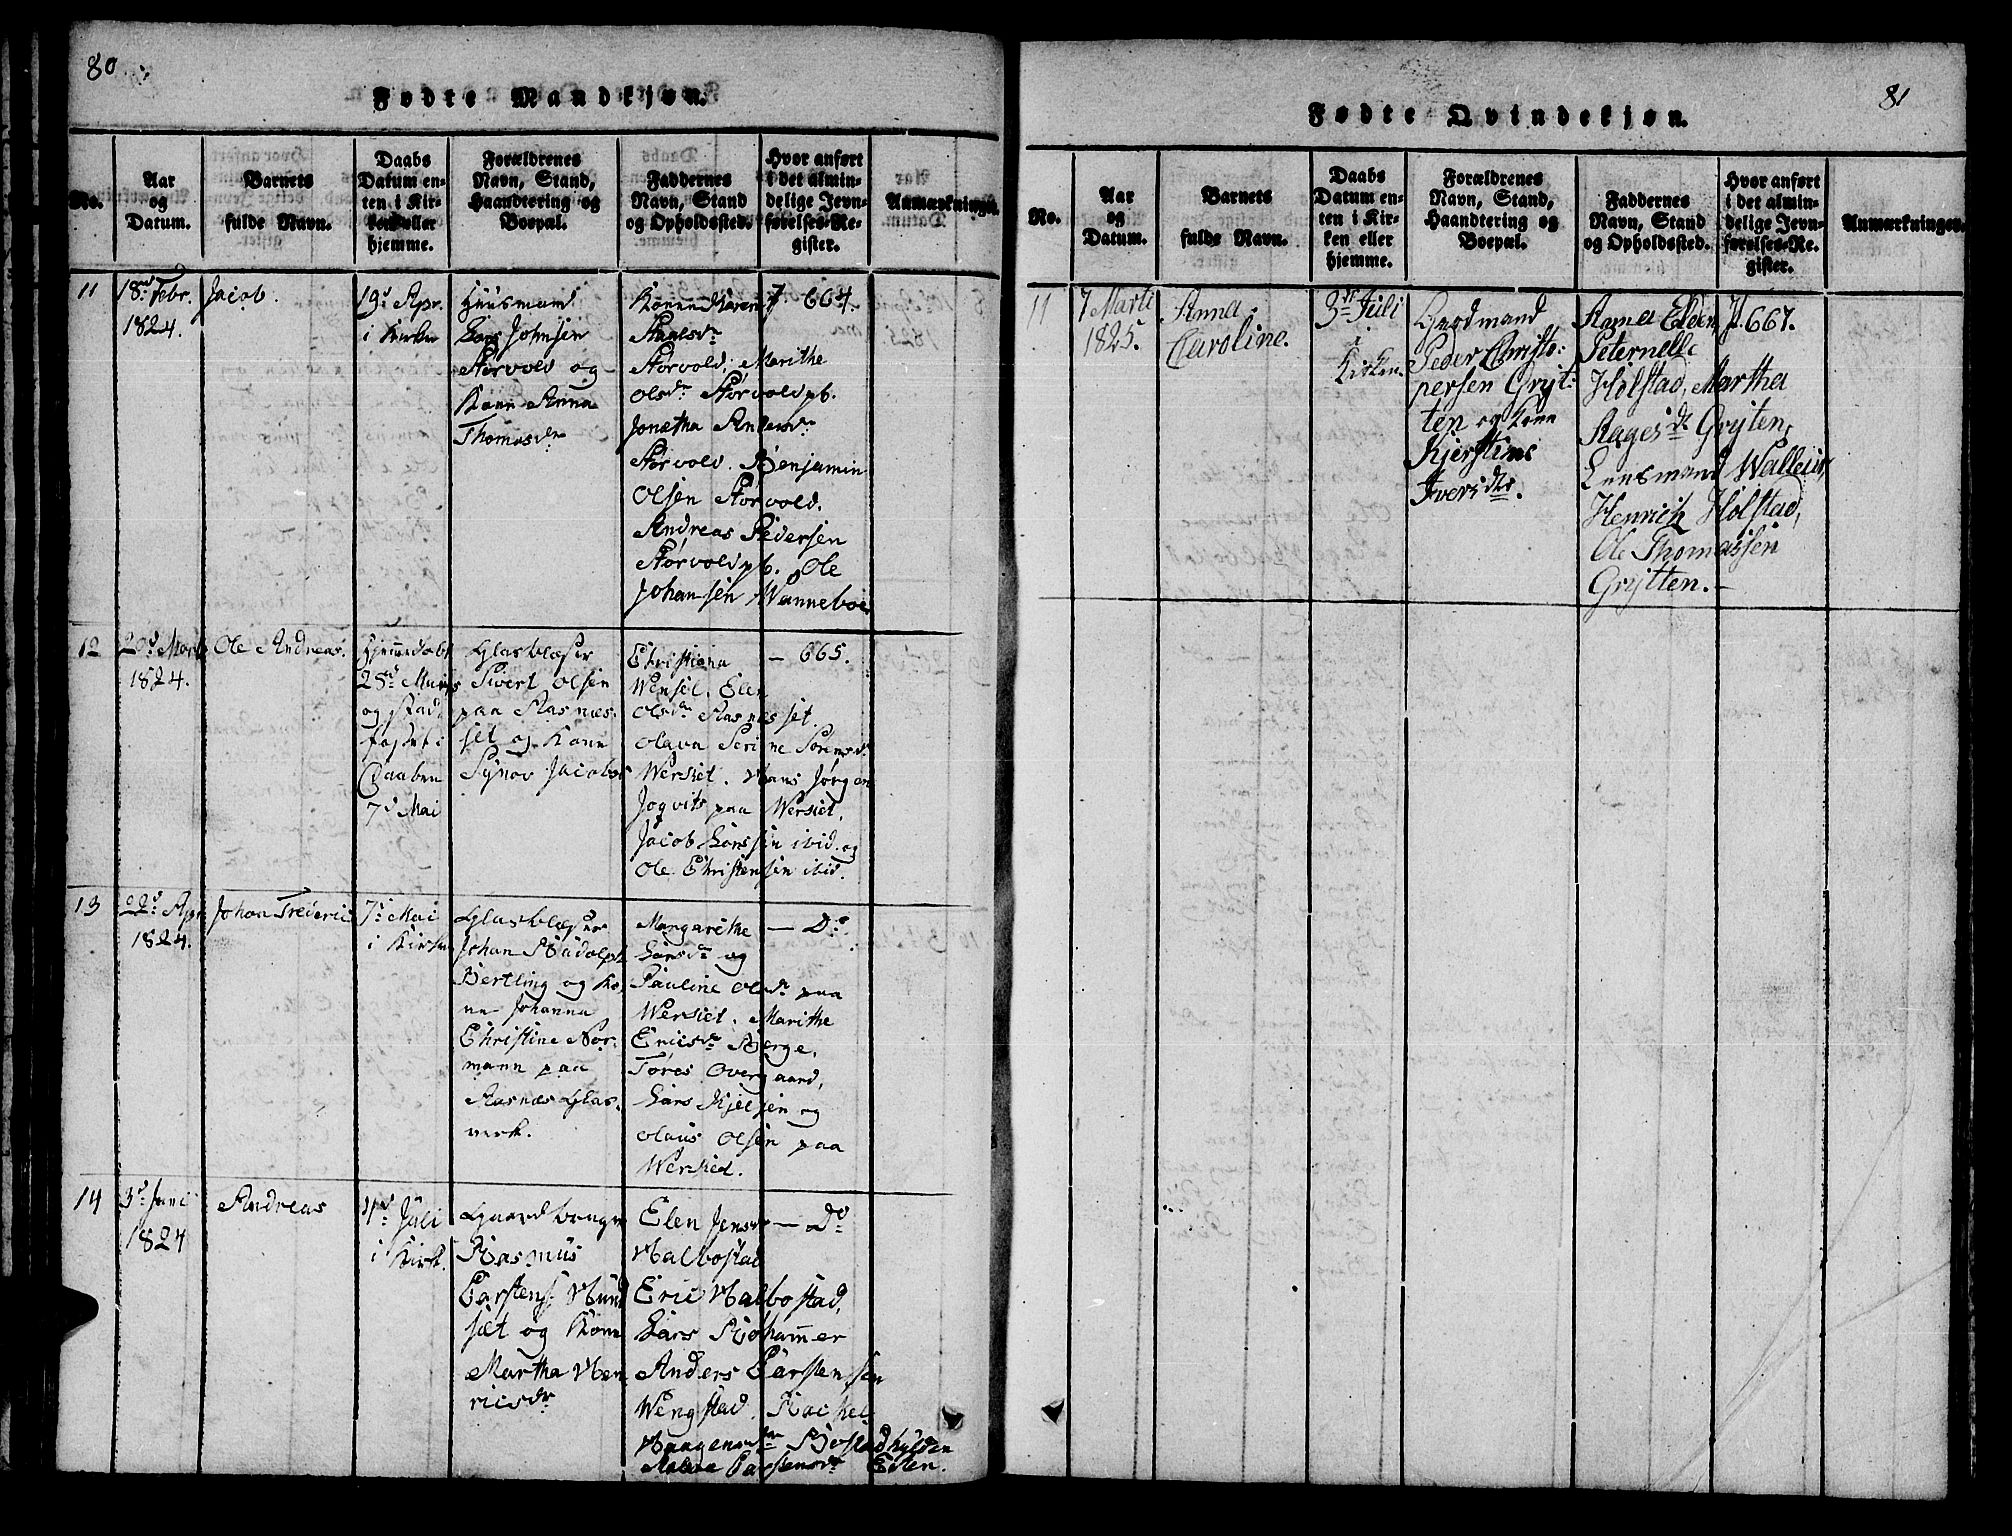 80
Fødte Mandkjøn.
No.
Aar
og
Datum.
Barnets
fulde Navn.
Daabs
Datum en-
ten i Kir-
ken eller
hjemme.
Forældrenes
Navn, Stand,
Haandtering og
Boepæl.
Faddernes
Navn, Stand
og Opholdssted.
Hvor anført
i det almin-
delige Jevn-
førelses-Re-
gister.
Anmærkninger.
11
18de Febr.
1824.
Jacob.
19d Apr.
i Kirken
Huusmand
Lars Johnsen
Storvold og
Kone Anna
Thomasdr
Konen Maren
Storvold, Marithe
Olsdr Storvold
Jonetha Andersdr
Storvold. Benjamin
Olsen Storvold.
Andreas Pedersen
Storvold. Ole
Johansen Wanneboe
664.
12
1824.
Ole Andreas.
Hjemmedøbt
og stad-
fæstet i
Daaben
7d Mai
Glasblæser
Sivert Olsen
paa Aasnæs-
set og Kone
Synov Jacobsd
Christiana
Wersiet. Elen
Olsdr Aasnesset.
Olava Serine Sørensd
Wersiet. Hans Jørgen
paa Wersiet,
Jacob Larssen ibid. og
Ole Christensen ibid.
— 665.
13
22d Apr
1824.
Johan Frederic
7d Mai
i Kirken
Glasblæser
Johan Rudolph
Bertling og Ko-
ne Johanna
Christine Nor-
mann paa
Aasnæs Glas-
verk.
Margarethe
Larsdr og
Pauline Olsdr paa
Wersiet. Marithe
Ericsdr Berge,
Tores Overgaard,
Lars Kjelsen og
Olaus Olsen paa
Wersiet.
— Do.
14
3d Juni
1824
Andreas
4d Juli
i Kirk.
Gaardbruger
Rasmus
Carstens: Hund
sæt og Kone
Martha Hen
ricsdr
Elen Jensdr
Halbostad
Eric Halbostad,
Lars Rødhammer
Anders Carstensen
Wengstad.
— Do
81
Fødte Qvindekjøn.
No.
Aar
og
Datum.
Barnets
fulde Navn.
Daabs
Datum en-
ten i Kir-
ken eller
hjemme.
Forældrenes
Navn, Stand,
Haandtering og
Boepæl.
Faddernes
Navn, Stand
og Opholdssted.
Hvor anført
i det almin-
delige Jevn-
førelses-Re-
gister.
Anmærkninger.
11
7 Marti
1825.
Anna
Caroline.
3de Juli
i
Kirken.
Gaardmand
Peder Christo:
persen Gryt:
ten og Kone
Kjerstine
Iversdtr.
Anna Elen
Peternelle
Holstad, Martha
Aagesdr Gryten,
Lensmand Walleir,
Henrich Holstad,
Ole Thomassen
Grytten.—
P. 667.